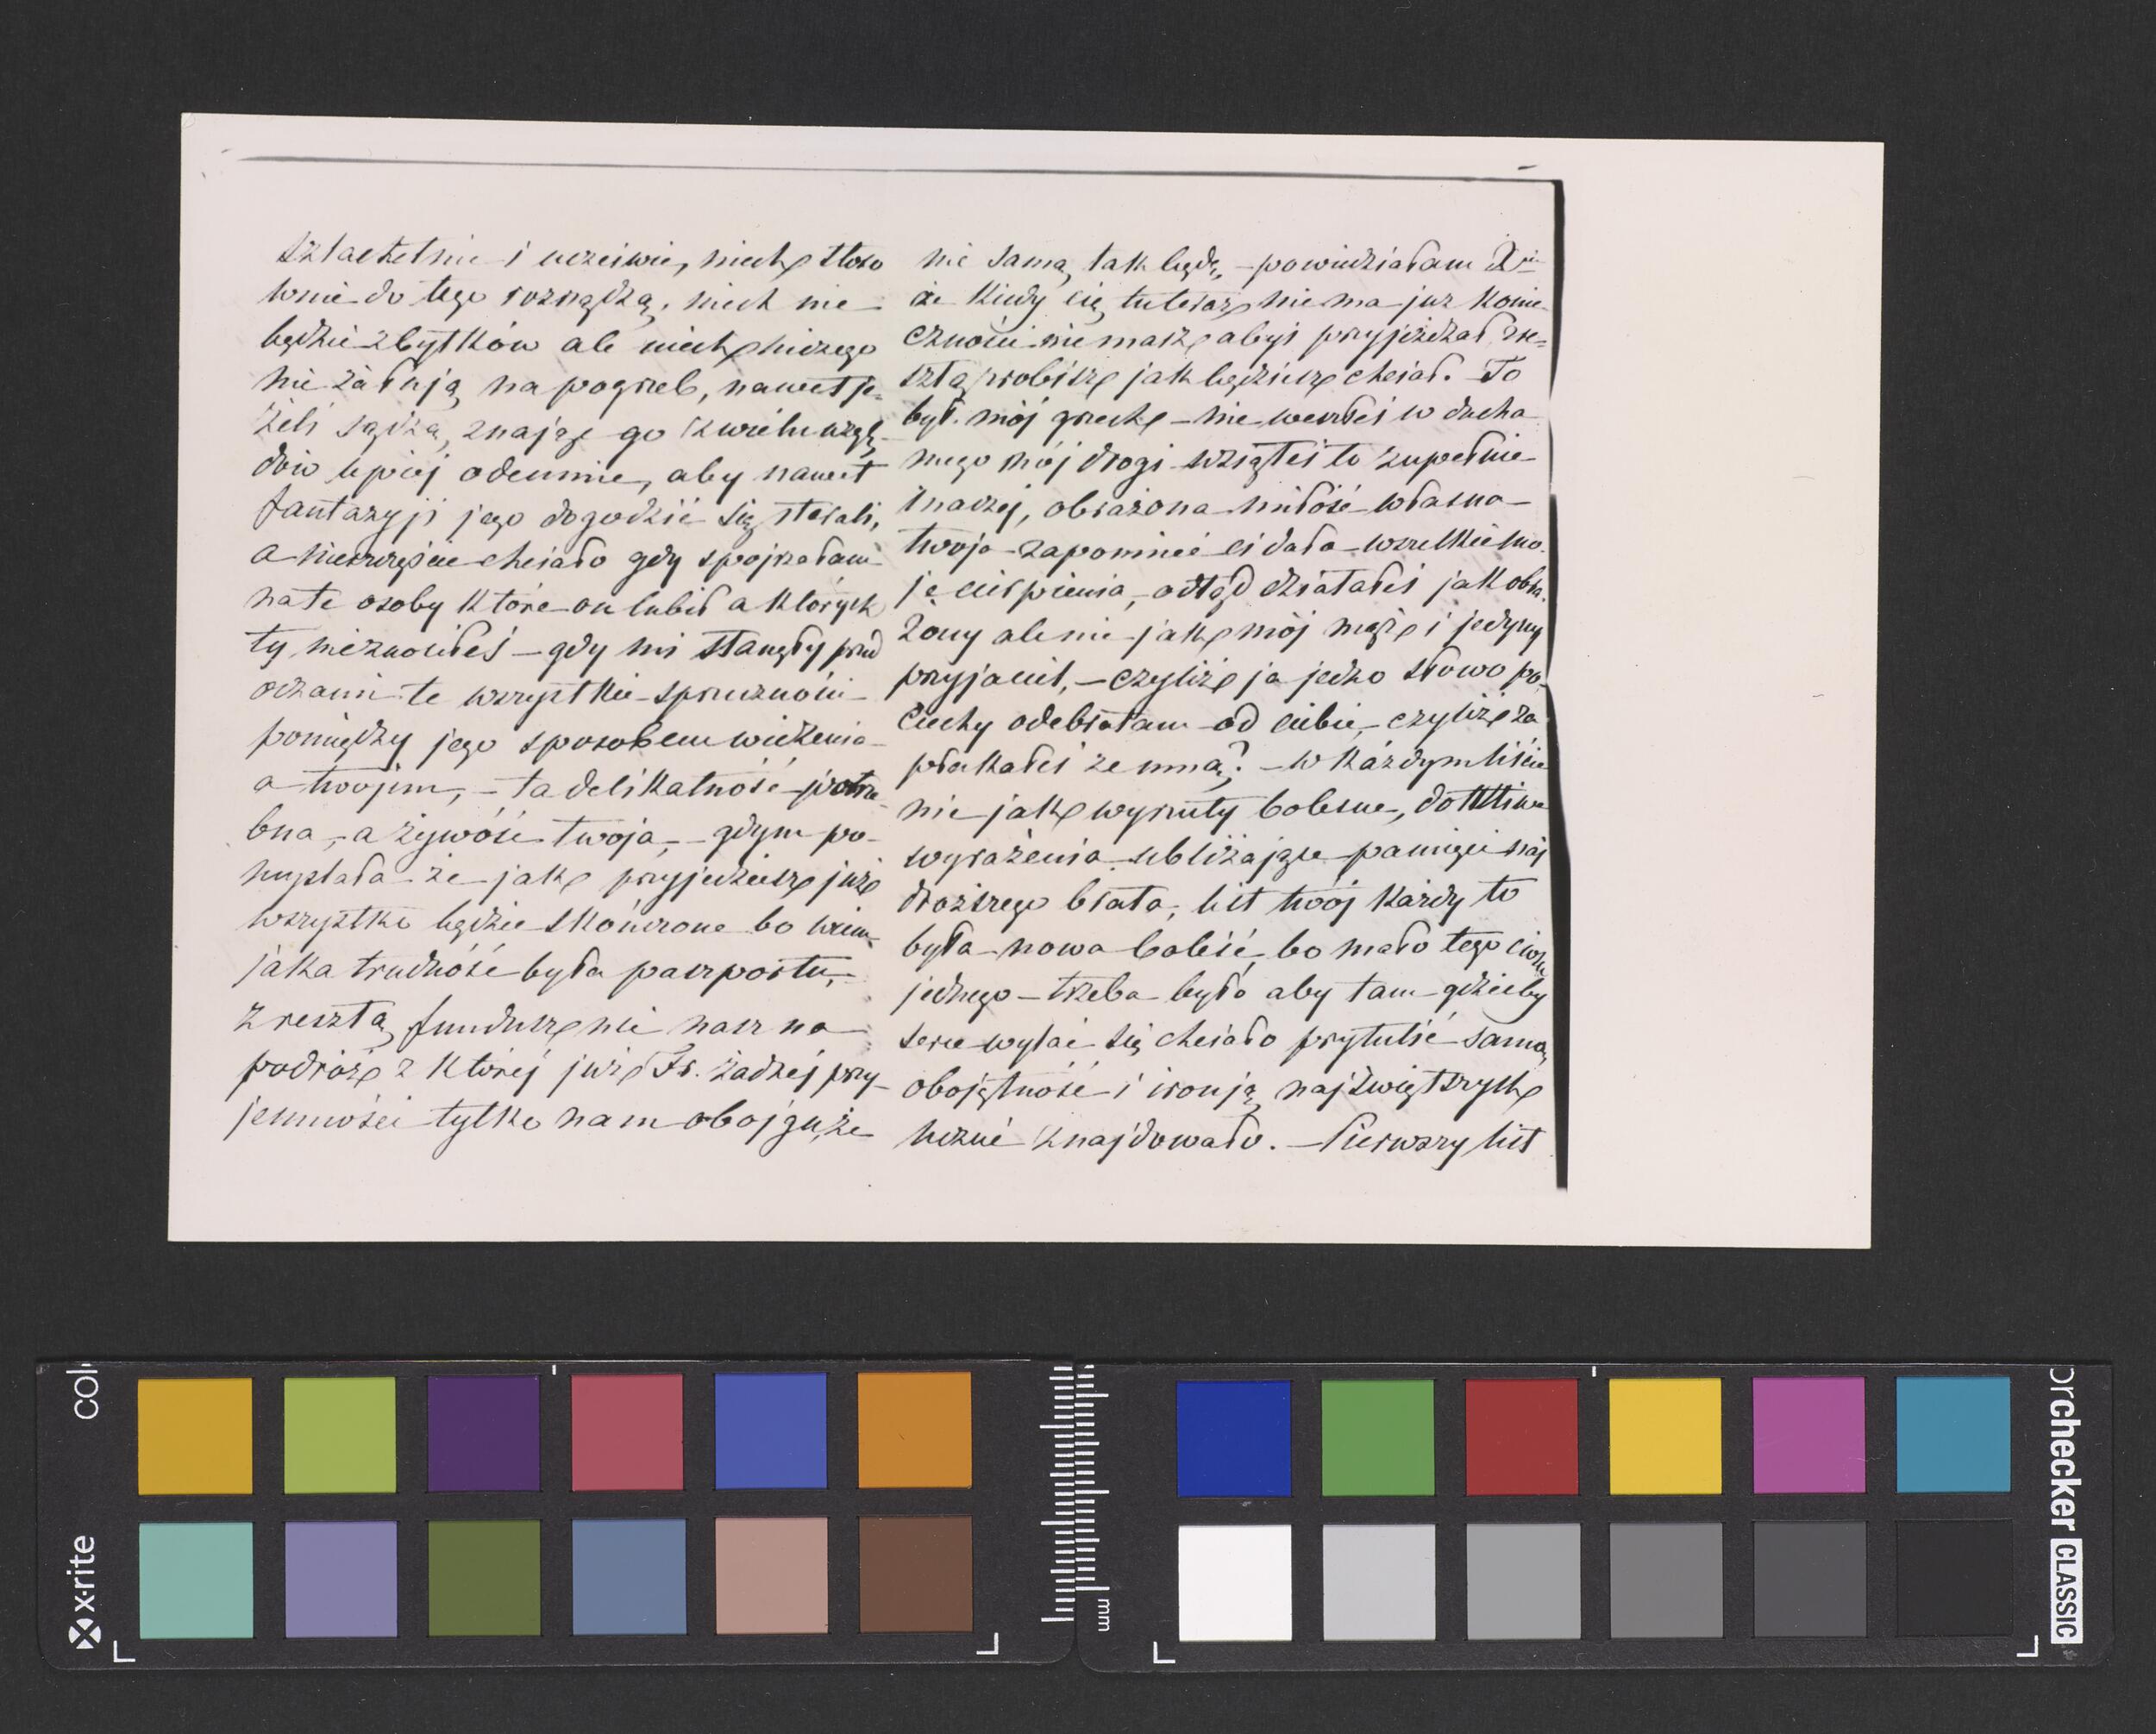 szlachetnie i uczciwie, niech stoso
wnie do tego rozrządzą, niech nie
będzie zbytków ale niech niczego
nie żałują na pogrzeb, nawet je-
żeli sądzą, znając go z wielu wzglę-
dów lepiej odemnie, aby nawet
fantazyji jego dogodzić się starali,
a nieszczęście chciało gdy spojrzałam
na te osoby które on lubił a których
ty nieznosiłeś – gdy mi stanęły przed
oczami te wszystkie sprzeczności
pomiędzy jego sposobem widzenia
a twojem, – ta delikatność potrze-
bna, a żywość twoja, – gdym po-
myslała że jak przyjedziesz już
wszystko będzie skończone bo wiem
jaka trudność była paszportu,
zresztą fundusz nie nasz na
podróż z której już Fr. żadnej przy-
jemności tylko nam obojgu, że
nie sama tak będę, – powiedziałam
że kiedy cię tu teraz nie ma już konie-
czności nie masz abyś przyjeżdzał zre-
sztą zrobisz jak będziesz chciał. To
był mój grzech – nie weszłeś w ducha
mego mój drogi wziąłeś to zupełnie
inaczej, obrażona miłość własna
twoja zapomnieć ci dała wszelkie mo-
je cierpienia, odtąd działałeś jak obra-
żony ale nie jak mój mąż i jedyny
przyjaciel, – czyliż ja jedno słowo po-
ciechy odebrałam od ciebie, czyliż za
płakałeś ze mną? – w każdym liście
nie jak wyrzuty bolesne, dotkliwe
wyrażenia ubliżające pamięci naj
droższego brata, list twój każdy to
była nowa boleść, bo mało tego ciosu
jednego – trzeba było aby tam gdzieby
serce wylać się chciało przytulić samą
obojętność i ironją najświętszych
uczuć znajdowało. – Pierwszy list
x-rite
mm
CLASSIC